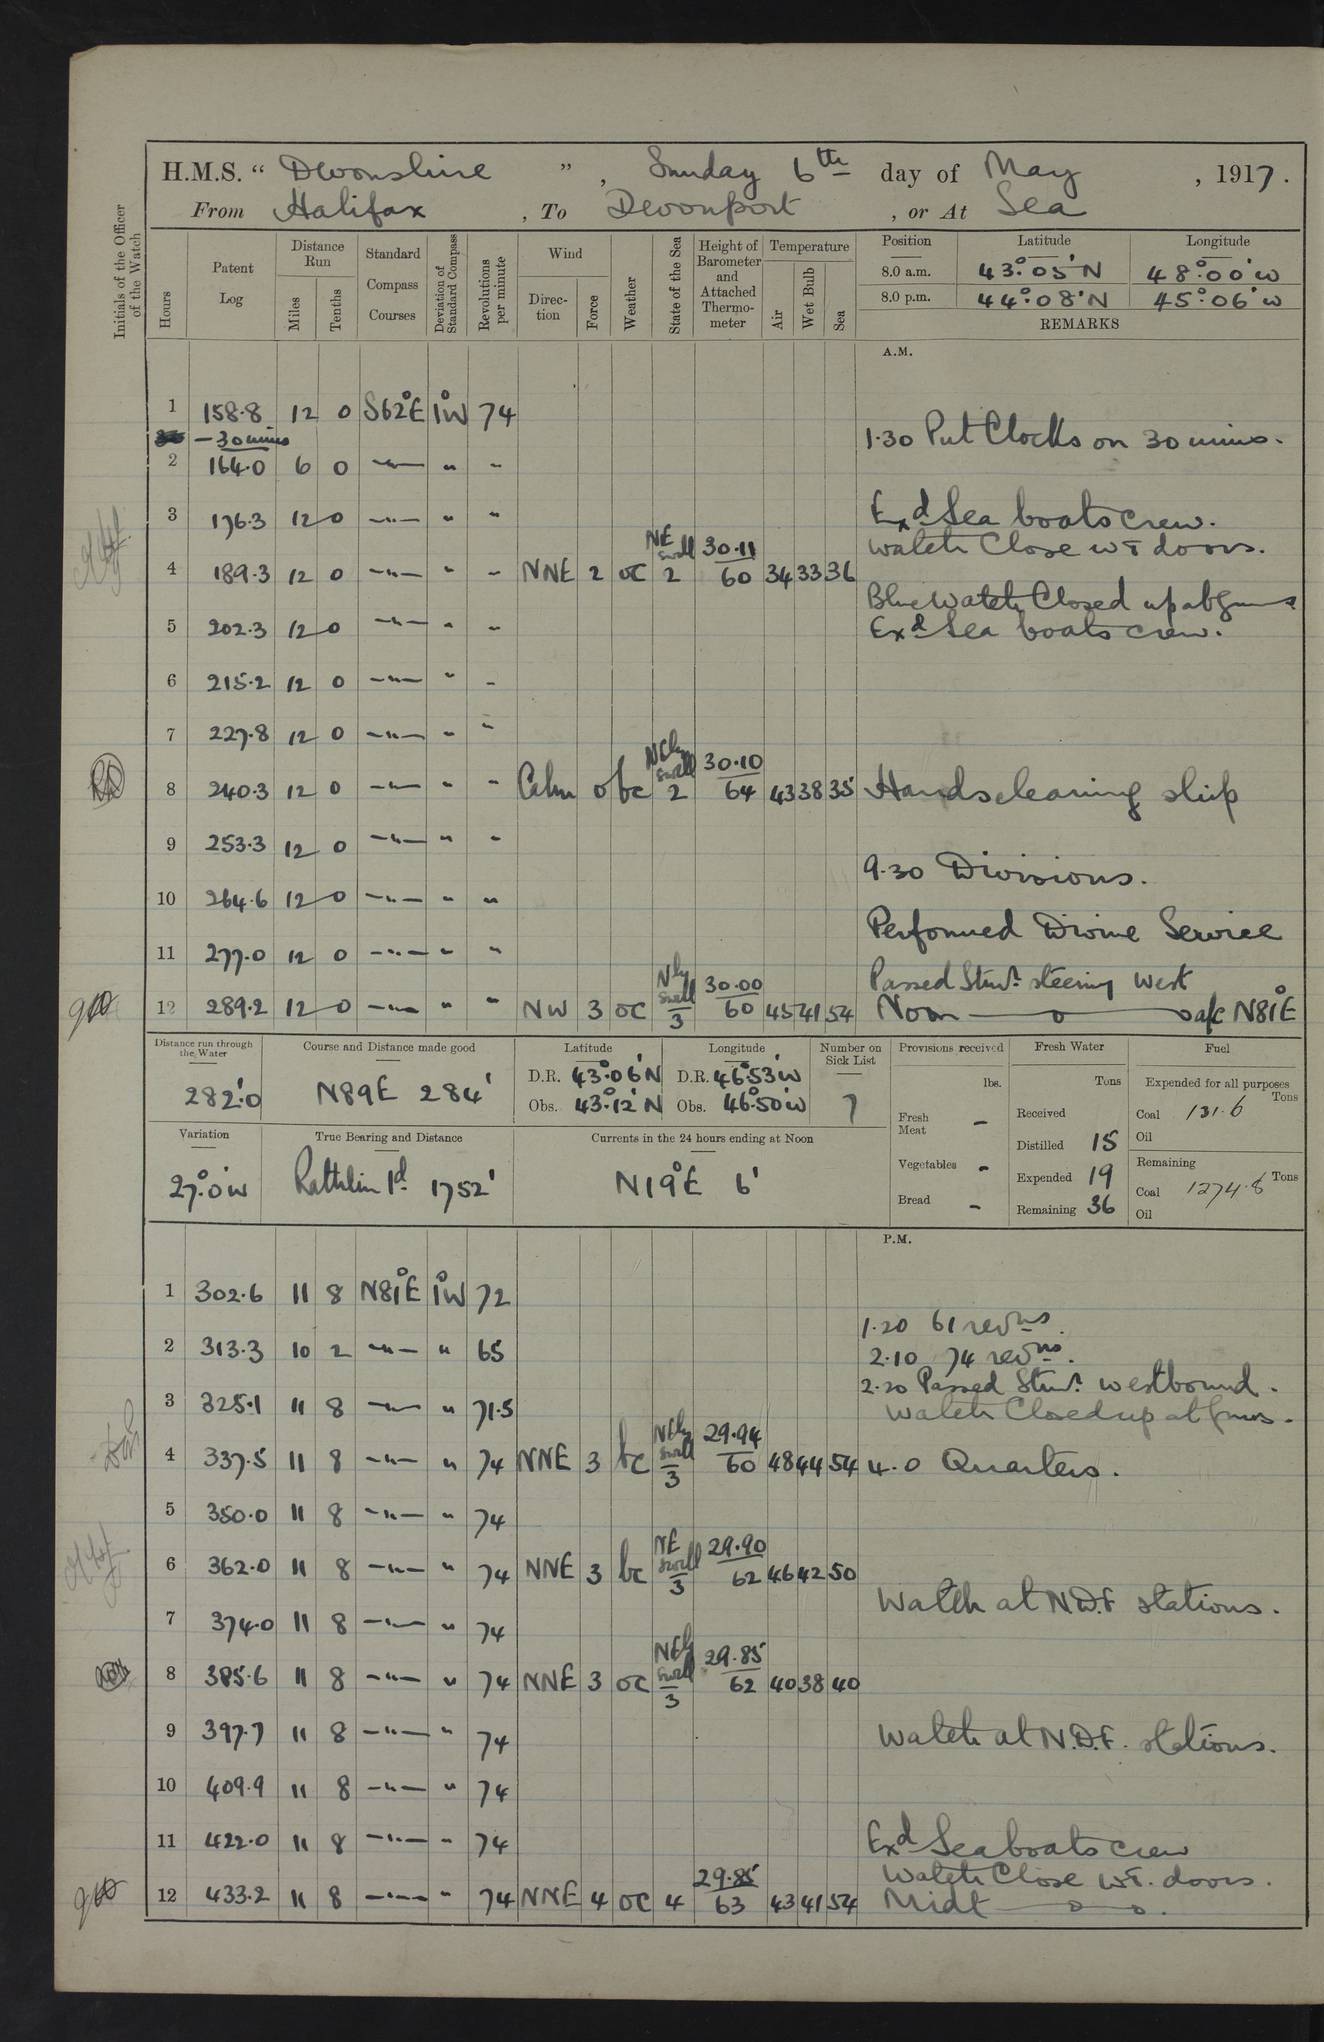 H.M.S. “ Devonshire ” , Sunday 6th day of May , 1917.
From Halifax , To Devonport , or At Sea
Initials of the Officer of the Watch
Hours Patent Log Distance Run Miles Tenths Standard Compass Courses Deviation of Standard Compass Revolutions per minute Wind Direction Force Weather State of the Sea Height of Barometer and Attached Thermometer Temperature Air Wet Bulb Sea
Position Latitude Longitude
8.0 a.m. 43°.05'N 48°.00'W
8.0 p.m. 44°.08'N 45°.06'W
REMARKS
A.M.
1 158.8 12 0 S62°E 1°W 74
-30 mins 1.30 Put Clocks on 30 mins.
2 164.0 6 0 -"- " "
3 176.3 12 0 -"- " " Exd Sea boats crew.
Watch Close WT doors.
4 189.3 12 0 -"- " " NNE 2 oc NE swell 2 30.11 60 34 33 36
Blue Watch Closed up at guns
5 202.3 12 0 -"- " " Exd Sea boats crew.
6 215.2 12 0 -"- " "
7 227.8 12 0 -"- " "
8 240.3 12 0 -"- " " Calm 0 bc NEly swell 2 30.10 64 43 38 35 Hands cleaning ship
9 253.3 12 0 -"- " "
9.30 Divisions.
10 264.6 12 0 -"- " "
Performed Divine Service
11 277.0 12 0 -"- " "
Passed Stmr. steering West
12 289.2 12 0 -"- " " NW 3 oc Nly swell 3 30.00 60 45 41 54 Noon a/c N81°E
Distance run through the Water 282'.0
Course and Distance made good N89E 284'
Latitude D.R. 43°.06'N Obs. 43°.12'N
Longitude D.R. 46°.53'W Obs. 46°.50'W
Number on Sick List 7
Provisions received lbs. Fresh Meat - Vegetables - Bread -
Fresh Water Tons Received Distilled 15 Expended 19 Remaining 36
Fuel Expended for all purposes Tons Coal 131.6 Oil Remaining Tons Coal 1274.8 Oil
Variation 27°.0'W
True Bearing and Distance Rathlin Id. 1752'
Currents in the 24 hours ending at Noon N19°E 6'
P.M.
1 302.6 11 8 N81°E 1°W 72
1.20 61 revns.
2 313.3 10 2 -"- " 65 2.10 74 revns.
2.20 Passed Stmr. westbound.
3 325.1 11 8 -"- " 71.5 Watch Closed up at guns.
4 337.5 11 8 -"- " 74 NNE 3 bc NEly swell 3 29.94 60 48 44 54 4.0 Quarters.
5 350.0 11 8 -"- " 74
6 362.0 11 8 -"- " 74 NNE 3 bc NE swell 3 29.90 62 46 42 50
Watch at N.D.F stations.
7 374.0 11 8 -"- " 74
8 385.6 11 8 -"- " 74 NNE 3 oc NEly swell 3 29.85 62 40 38 40
9 397.7 11 8 -"- " 74 Watch at N.D.F. stations.
10 409.9 11 8 -"- " 74
11 422.0 11 8 -"- " 74 Exd Sea boats crew
Watch Close WT. doors.
12 433.2 11 8 -"- " 74 NNE 4 oc 4 29.85 63 43 41 54 Midt